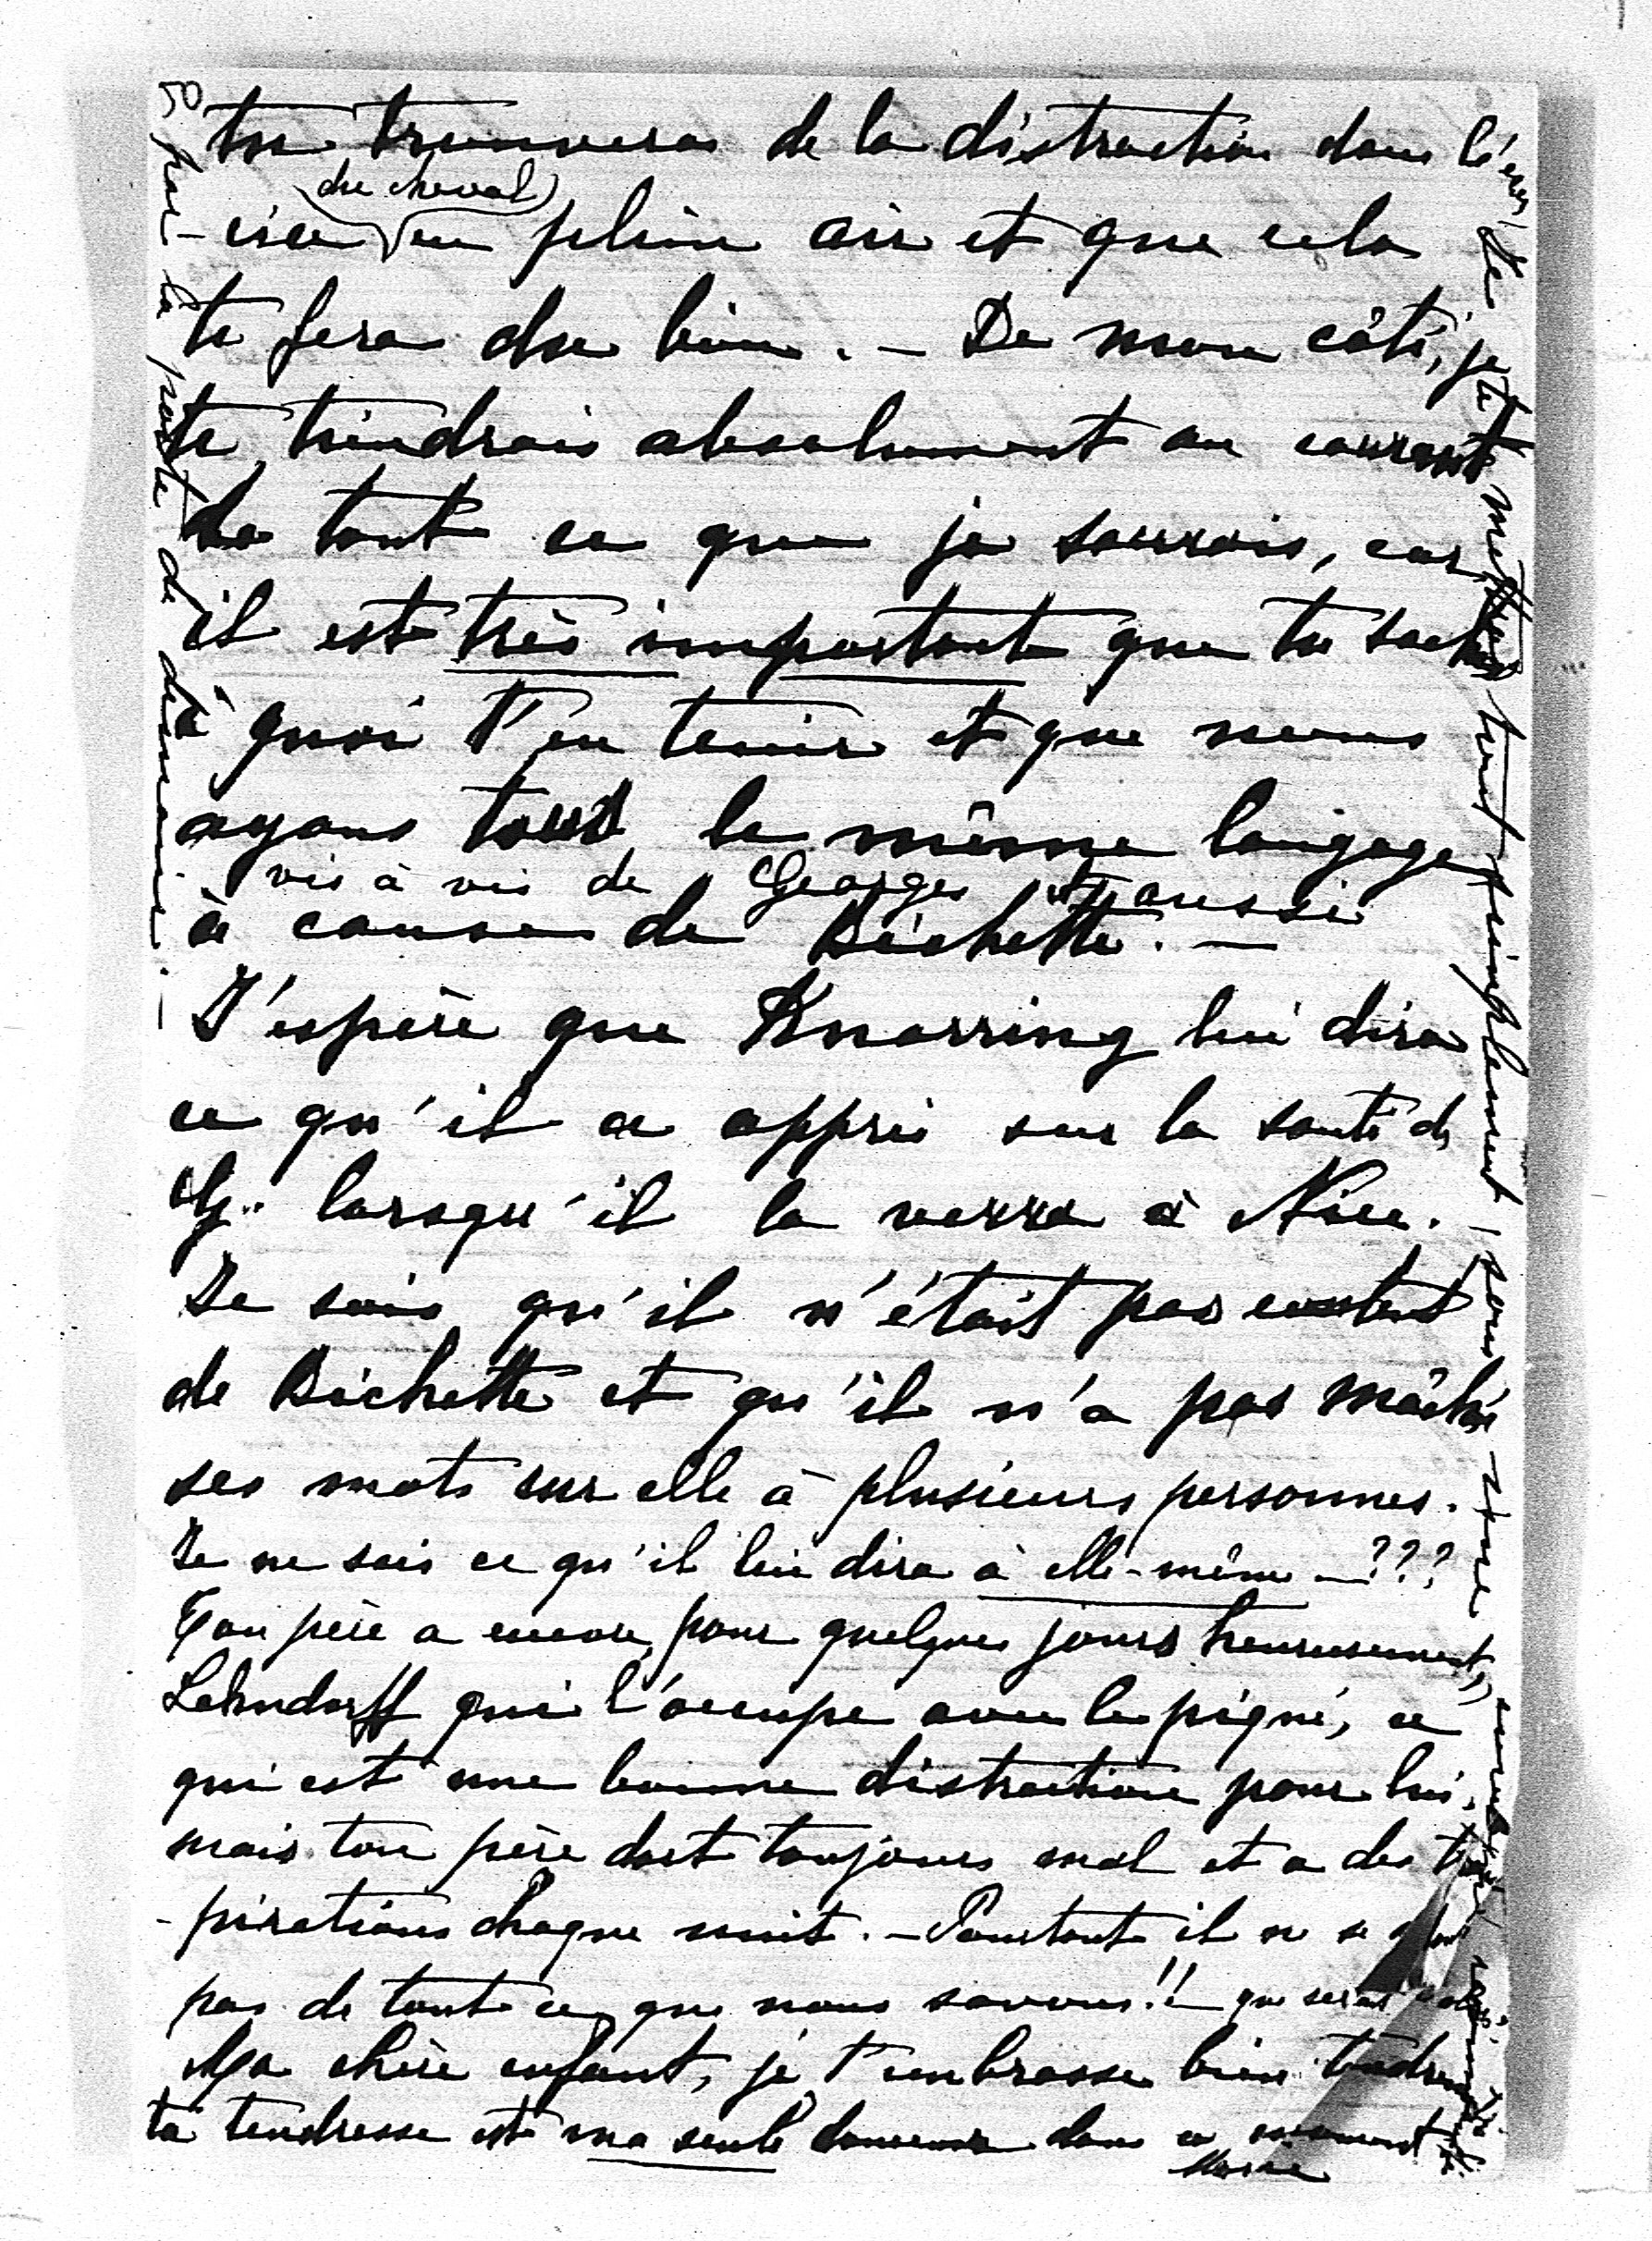 tu trouveras de la distraction dans l'exer
(du cheval)
-cice en plein air et que cela
te fera du bien. — De mon côté, je
te tiendrais absolument au courant
de tout ce que je saurais, car
il est très important que tu saches
à quoi t'en tenir et que nous
ayons tous le même langage
vis à vis de Georges et aussi
à cause de Bichette. —
J'espère que Knorring lui dira
ce qu'il a appris sur la santé de
G. lorsqu'il la verra à Nice.
Je sais qu'il n'était pas content
de Bichette et qu'il n'a pas mâché
ses mots sur elle à plusieurs personnes.
Je ne sais ce qu'il lui dira à elle-même — ???
Ton père a encore, pour quelques jours heureusement,
Lehndorff qui l'occupe avec le piqué, ce
qui est une bonne distraction pour lui,
mais ton père dort toujours mal et a des trans
-pirations chaque nuit. — Pourtant il ne se doute
pas de tout ce que nous savons!! que serait
Ma chère enfant, je t'embrasse bien tendrement
ta tendresse est ma seule douceur dans ce moment
Marie
Je te mettrai tout simplement, sous une
par la poste de demain. —